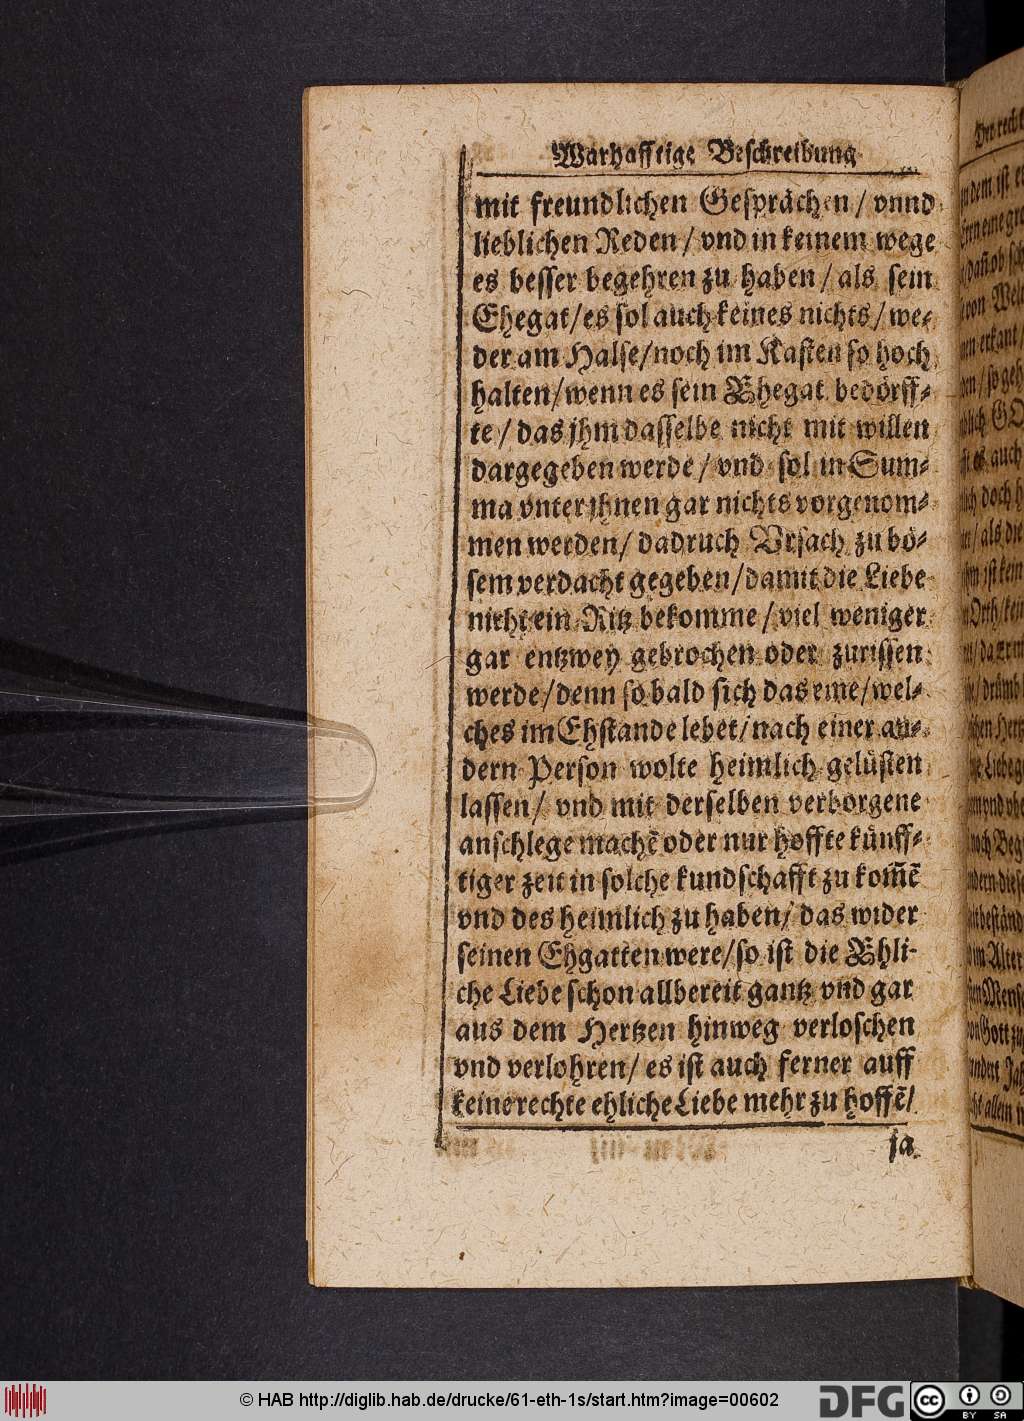 Warhafftige Beschreibung
mit freundlichen Gesprächen / vnnd
lieblichen Reden / vnd in keinem wege
es besser begehren zu haben / als sein
Ehegat / es sol auch keines nichts / we-
der am Halse / noch im Kasten so hoch
halten / wenn es sein Ehegat bedörff-
te / das jhm dasselbe nicht mit willen
dargegeben werde / vnd sol in Sum-
ma vnter jhnen gar nichts vorgenom-
men werden / dadruch Vrsach zu bö-
sem verdacht gegeben / damit die Liebe
nicht ein Ritz bekomme / viel weniger
gar entzwey gebrochen oder zurissen
werde / denn so bald sich das eine / wel-
ches im Ehstande lebet / nach einer an-
dern Person wolte heimlich gelüsten
lassen / vnd mit derselben verborgene
anschlege machẽ oder nur hoffte künff-
tiger zeit in solche kundschafft zu kom̃ẽ
vnd des heimlich zu haben / das wider
seinen Ehgatten were / so ist die Ehli-
che Liebe schon allbereit gantz vnd gar
aus dem Hertzen hinweg verloschen
vnd verlohren / es ist auch ferner auff
keine rechte ehliche Liebe mehr zu hoffẽ /
ja
© HAB http://diglib.hab.de/drucke/61-eth-1s/start.htm?image=00602
DFG
cc
BY SA